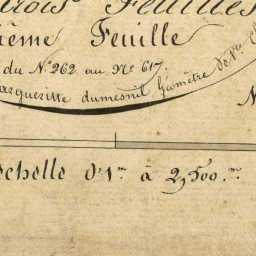 trois Feuilles
ième Feuille
du N.º 262 au N.º 617.
argueritte dumesnil Géomètre de 1.re
N
Echelle d'1.m à 2,500.m